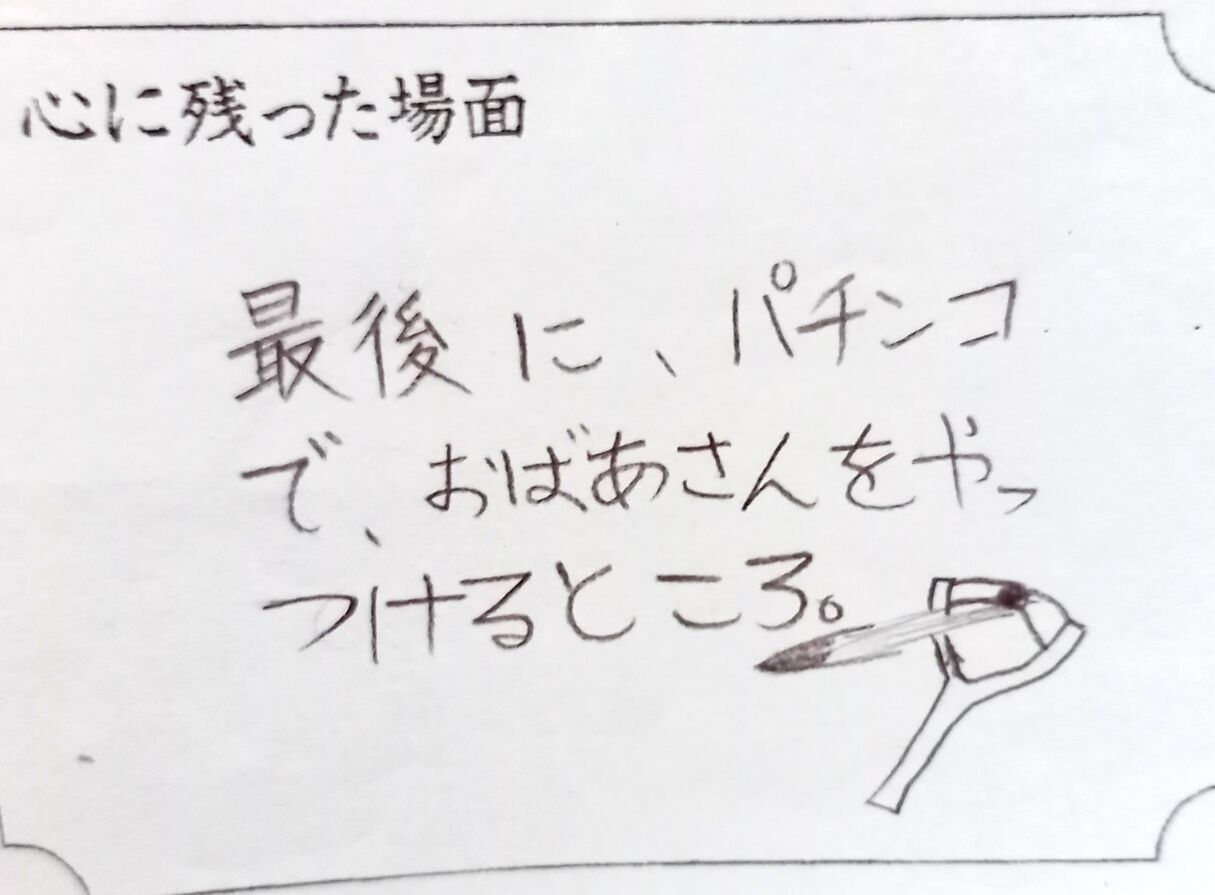 心に残った場面
最後に、パチンコ
で、おばあさんをやっ
つけるところ。